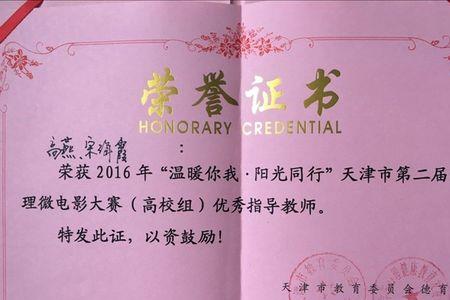 荣誉证书
HONORARY CREDENTIAL
高燕、宋
:
荣获2016年“温暖你我·阳光同行”天津市第二届
理微电影大赛（高校组）优秀指导教师。
特发此证，以资鼓励！
天津市教育委员会德育